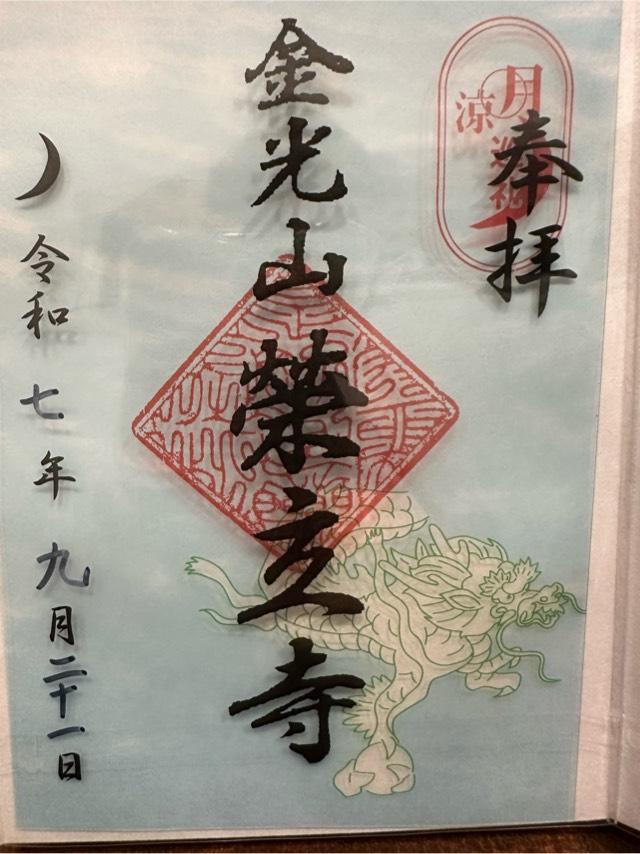 奉拝
月涼巡礼
金光山榮立寺
令和七年九月二十一日